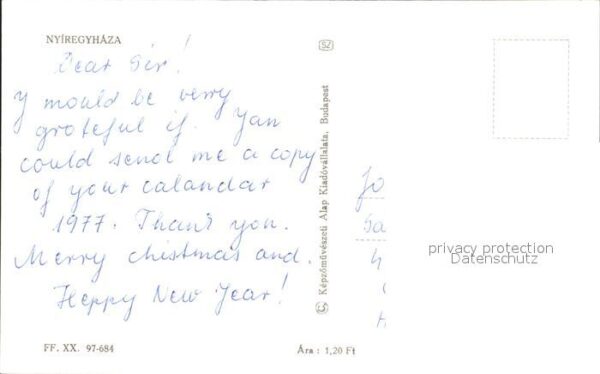 NYÍREGYHÁZA
SZ
Dear Sir!
Y mould be verry
grateful if. Yan
could send me a copy
of your calandar
1977. Thank you.
Merry chistmas and.
Heppy New Year!
Képzőművészeti Alap Kiadóvállalata, Budapest
Jo
privacy protection
Datenschutz
FF. XX. 97-684
Ára : 1,20 Ft